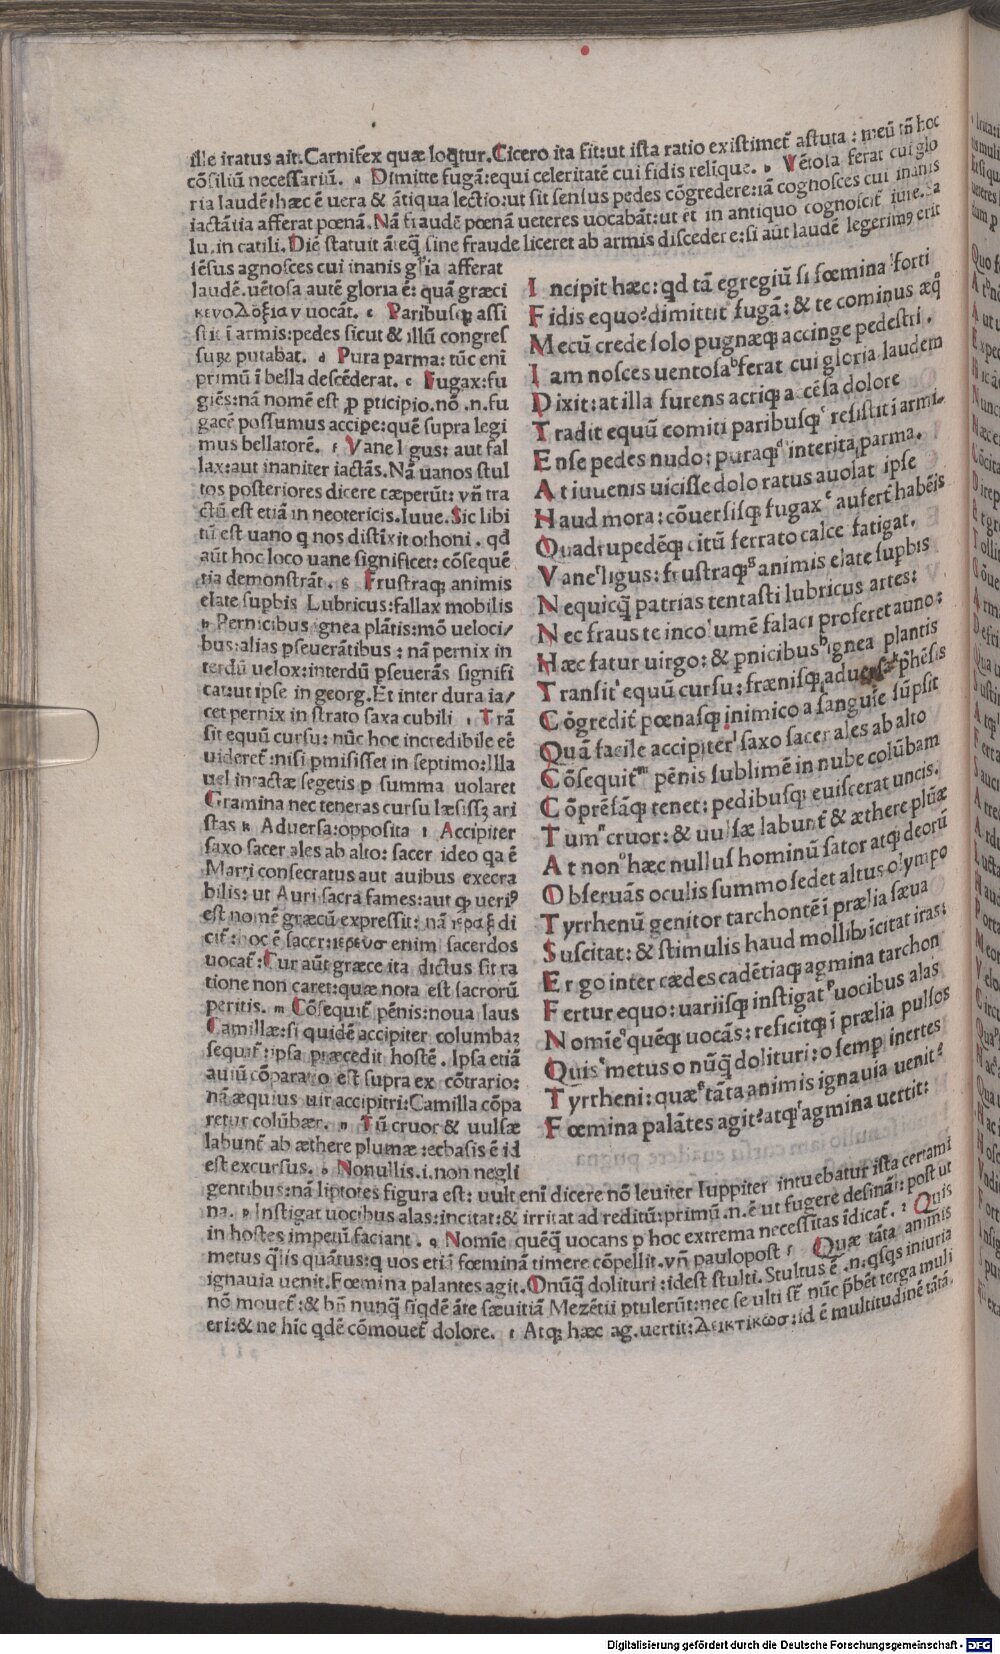 ille iratus ait. Carnifex quæ loqtur. Cicero ita fit: ut ista ratio existimet̃ astuta: meũ tñ hoc
cõsiliũ necessariũ. a Dimitte fugã: equi celeritatẽ cui fidis relĩque. b Vẽtosa ferat cui glo
ria laudẽ: hæc ẽ uera & ãtiqua lectio: ut sit sensus pedes cõgredere: iã cognosces cui inanis
iactãtia afferat pœnã. Nã fraudẽ pœnã ueteres uocabãt: ut et in antiquo cognoscit̃ iure. Sa
lu. in catili. Diẽ statuit ãteq̃ sine fraude liceret ab armis discedere: si aũt laudẽ legerimꝰ erit
sẽsus agnosces cui inanis gl'ia afferat
laudẽ. uẽtosa autẽ gloria ẽ: quã græci
κενοΔοξιαν uocãt. c Paribusq; assi
stit ĩ armis: pedes sicut & illũ congres
suꝝ putabat. d Pura parma: tũc eni
primũ ĩ bella descẽderat. e Fugax: fu
giẽs: nã nomẽ est p pticipio. nõ .n. fu
gacẽ possumus accipe: quẽ supra legi
mus bellatorẽ. f Vane ligus: aut fal
lax: aut inaniter iactãs. Nã uanos stul
tos posteriores dicere cæperũt: vñ tra
ctũ est etiã in neotericis. Iuue. Sic libi
tũ est uano q nos distĩxit othoni. qd
aũt hoc loco uane significet: cõsequẽ
tia demonstrãt. g Frustraq; animis
elate supbis Lubricus: fallax mobilis
h Pernicibus ignea plãtis: mõ ueloci/
bus: alias pseuerãtibus: nã pernix in
terdũ uelox: interdũ pseuerãs signifi
cat: ut ipse in georg. Et inter dura ia/
cet pernix in strato saxa cubili i Trã
sit equũ cursu: nũc hoc incredibile eẽ
uideret̃: nisi pmisisset in septimo: Illa
uel intactæ segetis p summa uolaret
Gramina nec teneras cursu læsissʒ ari
stas k Aduersa: opposita l Accipiter
saxo sacer ales ab alto: sacer ideo qa ẽ
Marti consecratus aut auibus execra
bilis: ut Auri sacra fames: aut q uerꝰ
est nomẽ græcũ expressit: nã ιεραξ di
cit̃: hoc ẽ sacer: ιερευσ enim sacerdos
uocat̃: Cur aũt græce ita dictus sit ra
tione non caret: quæ nota est sacrorũ
peritis. m Cõsequit̃ pẽnis: noua laus
Camillæ: si quidẽ accipiter columbaʒ
sequit̃: ipsa præcedit hostẽ. Ipsa etiã
auiũ cõparatio est supra ex cõtrario:
nã æquius uir accipitri: Camilla cõpa
retur colũbær. n Tũ cruor & uulsæ
labunt̃ ab æthere plumæ: ecbasis ẽ id
est excursus. o Nonullis .i. non negli
gentibus: nã liptotes figura est: uult eni dicere nõ leuiter Iuppiter intuebatur ista certami
na. p Instigat uocibus alas: incitat: & irritat ad reditũ: primũ .n. ẽ ut fugere desinãt: post ut
in hostes impetũ faciant. q Nomĩe quẽq̃ uocans p hoc extrema necessitas ĩdicat̃. r Quis
metus q̃lis quãtus: q uos etiã fœminã timere cõpellit. vñ paulopost f Quæ tãta animis
ignauia uenit. Fœmina palantes agit. Onũq̃ dolituri: idest stulti. Stultus ẽ .n. qsqs iniuria
nõ mouet̃: & bñ nunq̃ siqdẽ ãte sæuitiã Mezẽtii ptulerũt: nec se ulti st̃ nũc p̃bẽt terga muli
eri: & ne hĩc qdẽ cõmouet̃ dolore. t Atq; hæc ag. uertit: Δεικτικωσ: id ẽ multitudinẽ tãtã.
I ncipit hæc: qd tã egregiũ si fœmina forti
F idis equo? dimittit fugã: & te cominus æq̊
M ecũ crede solo pugnæq; accinge pedestri.
I am nosces uentosa ferat cui gloria laudem
D ixit: at illa furens acriq; accẽsa dolore
T radit equũ comiti paribusq; resistit i armis
E nse pedes nudo: puraq; interita parma.
A t iuuenis uicisse dolo ratus auolat ipse
H aud mora: cõuersisq; fugax aufert̃ habẽis
Q uadrupedẽq; citũ ferrato calce fatigat.
V ane ligus: frustraq; animis elate supbis
N equicq̃ patrias tentasti lubricus artes:
N ec fraus te incolumẽ falaci proferet auno:
H æc fatur uirgo: & pnicibus ignea plantis
T ransit equũ cursu: frænisq; aduersa p̃hẽsis
C õgredit̃ pœnasq; inimico a sanguie sũpsit
Q uã facile accipiter saxo sacer ales ab alto
C õsequit̃ pẽnis sublimẽ in nube colũbam
C õprẽsãq; tenet: pedibusq; euiscerat uncis.
T um cruor: & uulsæ labunt̃ & æthere plũæ
A t non hæc nullus hominũ sator atq; deorũ
O bseruãs oculis summo sedet altus olympo
T yrrhenũ genitor tarchontẽ i prælia sæua
S uscitat: & stimulis haud mollibꝰ ĩcitat iras:
E rgo inter cædes cadẽtiaq; agmina tarchon
F ertur equo: uariisq; instigat uocibus alas
N omĩe quẽq; uocãs: reficitq; i prælia pulsos
Q uis metus o nũq̃ dolituri: o semp inertes
T yrrheni: quæ tãta animis ignauia uenit?
F œmina palãtes agit? atq; agmina uertit:
Digitalisierung gefördert durch die Deutsche Forschungsgemeinschaft - DFG